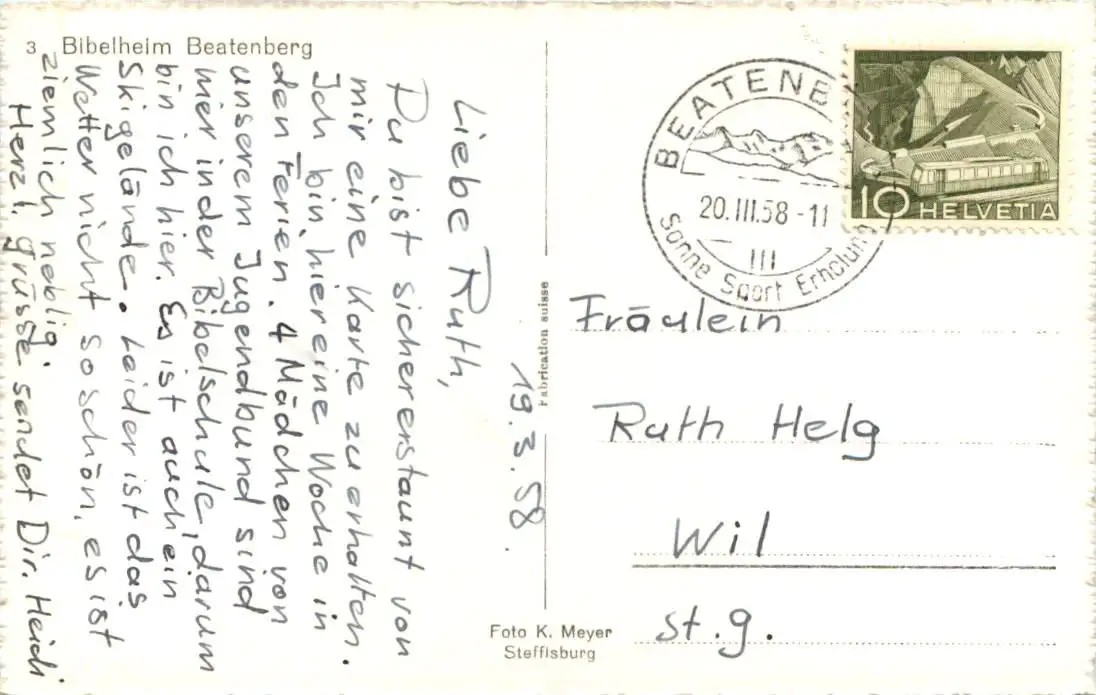 3 Bibelheim Beatenberg
19.3.58.
Liebe Ruth,
Du bist sicher erstaunt von
mir eine Karte zu erhalten.
Ich bin hier eine Woche in
den Ferien. 4 Mädchen von
unserem Jugendbund sind
hier in der Bibelschule, darum
bin ich hier. Es ist auch ein
Skigelände. Leider ist das
Wetter nicht so schön, es ist
ziemlich neblig.
Herzl. grüsse sendet Dir. Heidi
Fabrication suisse
Foto K. Meyer
Steffisburg
BEATENB
20.III.58-11
III
Sonne Sport Erholun
10 HELVETIA
Fräulein
Ruth Helg
Wil
st.g.